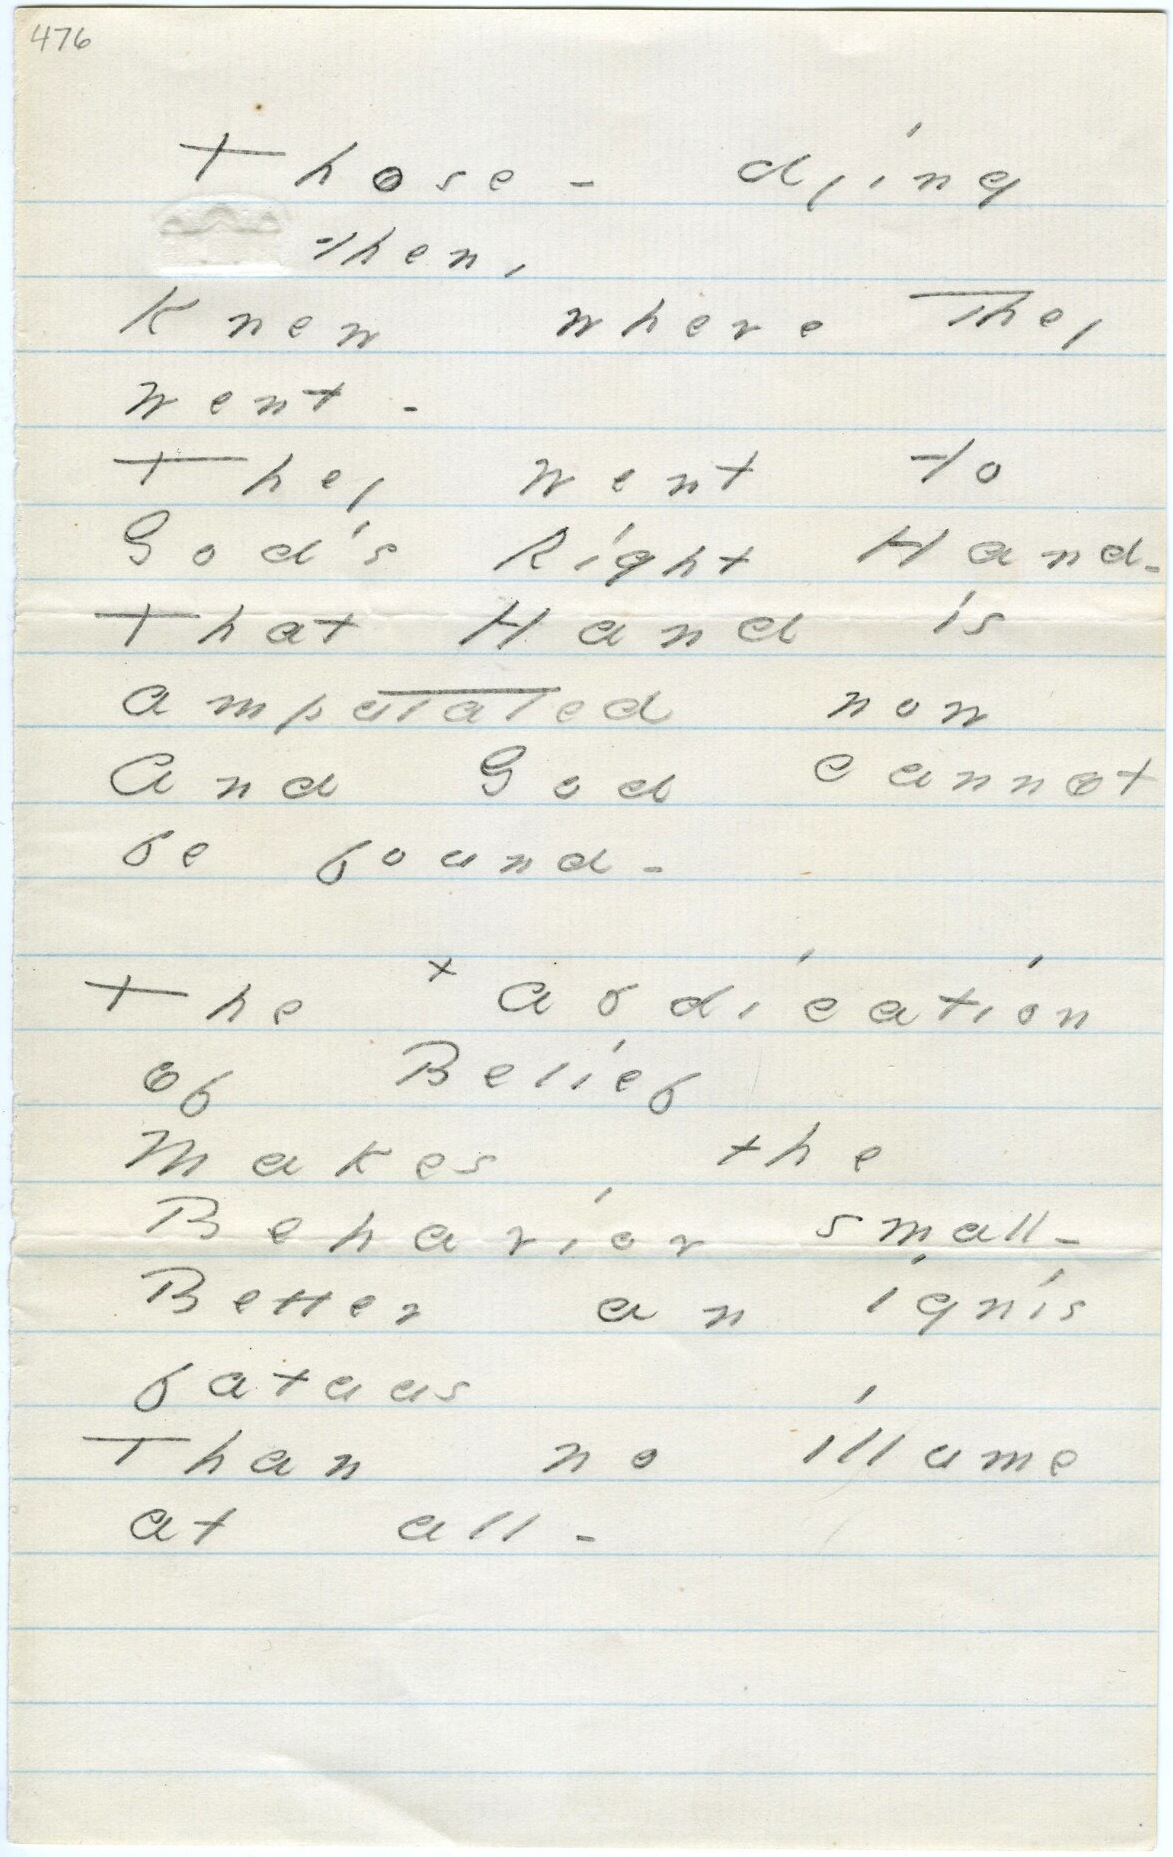 476
Those - dying
then,
Knew where they
went -
They went to
God's Right Hand -
That Hand is
amputated now
And God cannot
be found -
The + abdication
of Belief
Makes the
Behavior small -
Better an ignis
fatuus
Than no illume
at all -